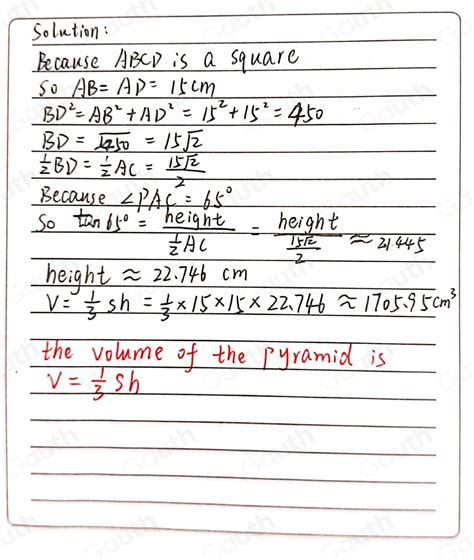 Solution:
Because ABCD is a square
So AB = AD = 15cm
BD² = AB² + AD² = 15² + 15² = 450
BD = √450 = 15√2
½BD = ½AC = 15√2/2
Because ∠PAC = 65°
So tan 65° = height/(½AC) = height/(15√2/2) ≈ 21.445
height ≈ 22.746 cm
V = ⅓sh = ⅓ × 15 × 15 × 22.746 ≈ 1705.95cm³
the volume of the pyramid is
V = ⅓Sh